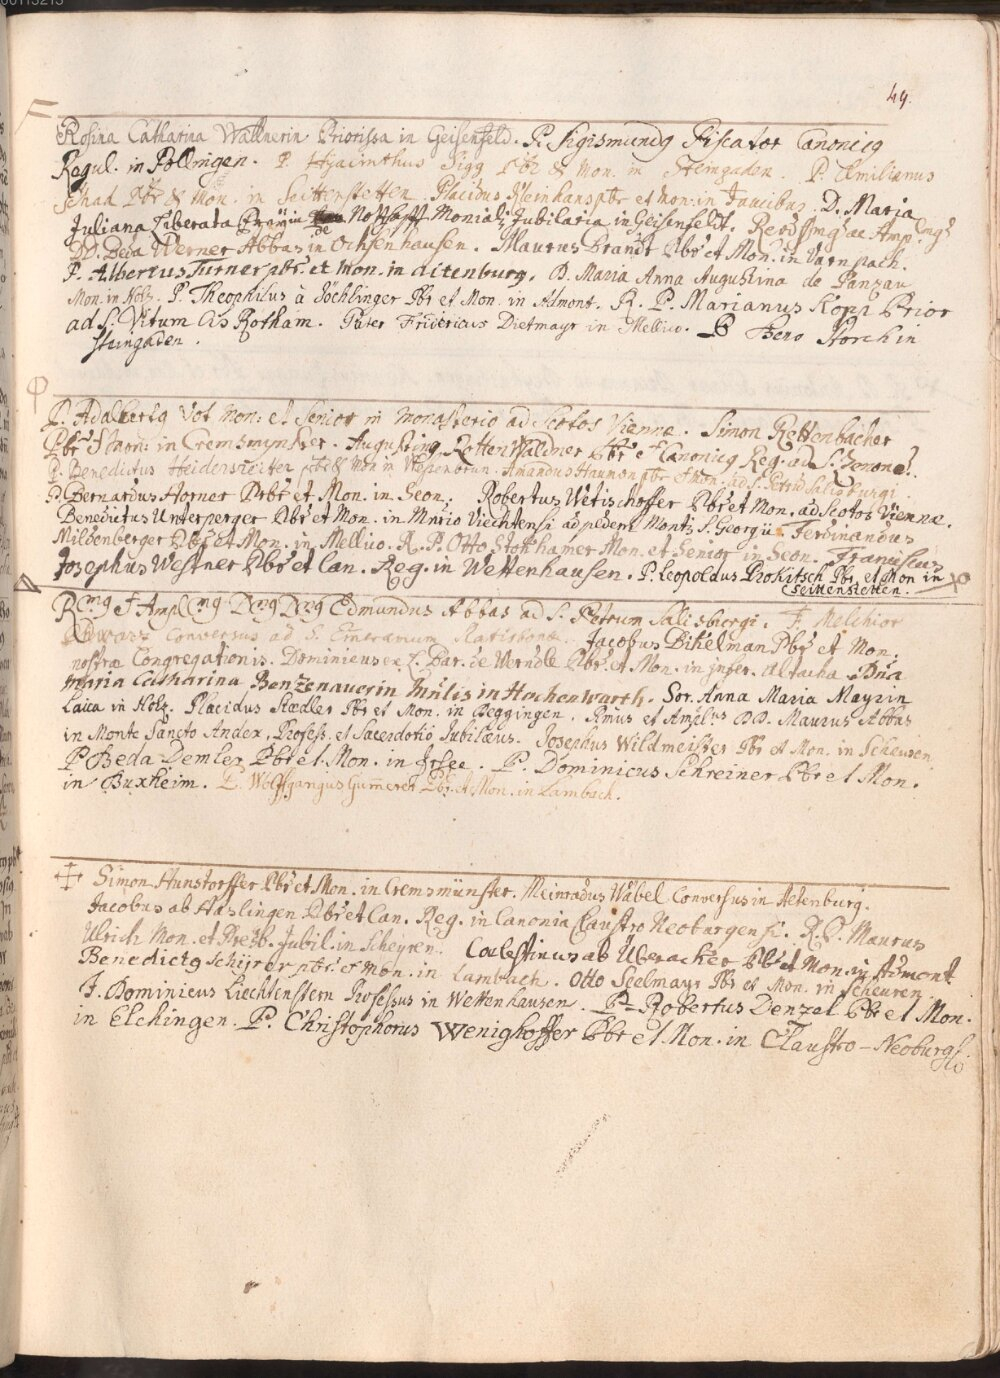 00113213
49.
Rosina Catharina Wallnerin Priorissa in Geisenfeld. P. Sigismundꝰ Piscator Canonicꝰ
Regul. in Pollingen. P. Hyacinthus Sigg Pbr & Mon. in Steingaden. P. Emilianus
Schad Pbr & Mon. in Seittenstetten. Placidus Kleinhans pbr et mon: in Faucibus. D. Maria
Juliana Liberata de Nothafft Monialis Jubilaria in Geisenfeldt. Revdssimꝰ ac Amp.
DD. Beda Werner Abbas in Ochsenhausen. Maurus Brandt Pbr et Mon. in Varnpach.
P. Albertus Turner pbr. et mon. in altenburg. D. Maria Anna Augustina de Panzau
Mon. in Holz. P. Theophilus à Zöchlinger Pbr et Mon. in Admont. R. P. Marianus Kopp Prior
ad S. Vitum cis Rotham. Pater Fridericus Dietmayr in Mellico. P Beno Storch in
Steingaden.
P. Adalbertꝰ Vot mon: et Senior in monasterio ad Scotos Viennæ. Simon Rettenbacher
Pbr & mon: in Cremsmynster. Augustinꝰ Rottenwaldner Pbr et Canonicꝰ Reg. ad S. Zenone.
P. Benedictus Heidersreitter pbr & Mon in Wessenbrun. Amandus Hanmon pbr & Mon. ad S. Petrum Salisburgi.
P. Bernardus Horner Prbr et Mon. in Seon. Robertus Vetischoffer Pbr et Mon. ad Scotos Viennæ.
Benedictus Unterperger Pbr et Mon. in Mnrio Viechtensi ad pedem Montis S. Georgii. Ferdinandus
Mildenberger Pbr et Mon. in Mellico. R. P. Otto Stokhamer Mon. et Senior in Seon. Franciscus
Josephus Westner Pbr et Can. Reg. in Wettenhausen. P. Leopoldus Prokitsch Pbr et Mon in
Seittenstetten.
Rmꝰ & Ampl Dnꝰ Dnꝰ Edmundus Abbas ad S. Petrum Salisburgi. F. Melchior
Conversus ad S. Emeramum Ratisbonæ. Jacobus Bikelman Pbr et Mon.
nostræ Congregationis. Dominicus ex L. Bar. de Werndle Pbr et Mon. in infer. altacha. Dna
Maria Catharina Benzenauerin in Hochenwarth. Sor. Anna Maria Mayrin
Laica in Holz. Placidus Stædler Pbr et Mon. in Deggingen. Rmus et Amplus DD. Maurus Abbas
in Monte Sancto Andex. Profess. et Sacerdotio Jubilæus. Josephus Wildmeister Pbr et Mon. in Scheuren.
P Beda Demler Pbr et Mon. in Irsee. P. Dominicus Schreiner Pbr et Mon.
in Buxheim. P. Wolffgangus Gumerer Pbr et Mon. in Lambach.
Simon Hunstorffer Pbr et Mon. in Cremsmünster. Meinradus Wäbel Conversus in Altenburg.
Jacobus ab Haslingen Pbr et Can. Reg. in Canonia Claustro Neoburgensi. R. P. Maurus
Ulrich Mon. et Presb. Jubil. in Scheyren. Coelestinus ab Uberacker Pbr et Mon. in Admont
Benedictꝰ Schijrer pbr. et mon. in Lambach. Otto Seelmayr Pbr et Mon. in Scheuren.
F. Dominicus Liechtenstern Professus in Wettenhausen. P. Robertus Denzel Pbr et Mon.
in Elchingen. P. Christophorus Wenighoffer Pbr et Mon. in Claustro-Neoburgo